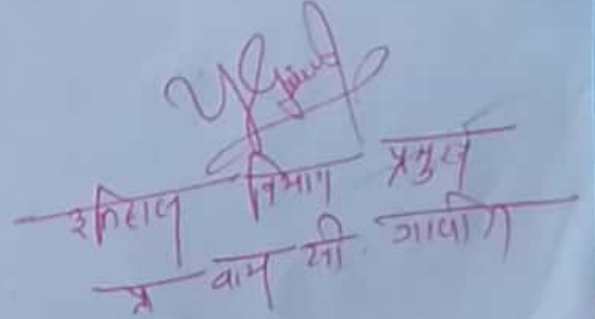 इतिहास विभाग प्रमुख
प्रा वाय सी. गावीत